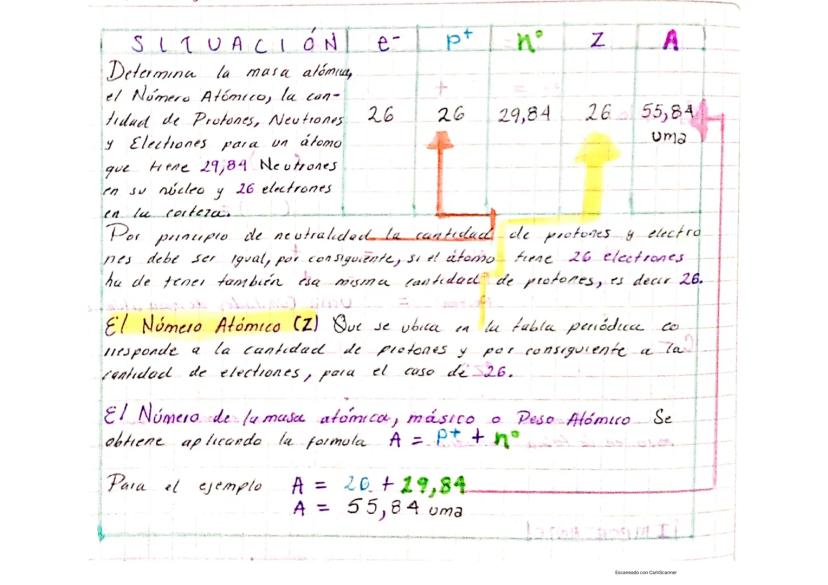 SITUACIÓN e- p+ n° Z A
Determina la masa atómica,
el Número Atómico, la can-
tidad de Protones, Neutrones
y Electrones para un átomo
que tiene 29,84 Neutrones
en su núcleo y 26 electrones
en la corteza.
26 26 29,84 26 55,84
uma
Por principio de neutralidad la cantidad de protones y electro
nes debe ser igual, por consiguiente, si el átomo tiene 26 electrones
ha de tener también esa misma cantidad de protones, es decir 26.
El Número Atómico (Z) Que se ubica en la tabla periódica co
rresponde a la cantidad de protones y por consiguiente a la
cantidad de electrones, para el caso de 26.
El Número de la masa atómica, másico o Peso Atómico Se
obtiene aplicando la formula A = p+ + n°
Para el ejemplo A = 26 + 29,84
A = 55,84 uma
Escaneado con CamScanner